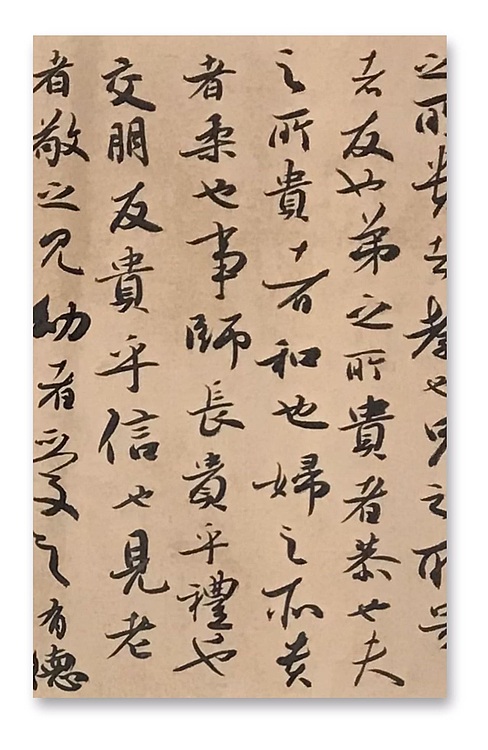 之所貴者孝也兄之所貴
者友也弟之所貴者恭也夫
之所貴者和也婦之所貴
者柔也事師長貴乎禮也
交朋友貴乎信也見老
者敬之見幼者愛之有德